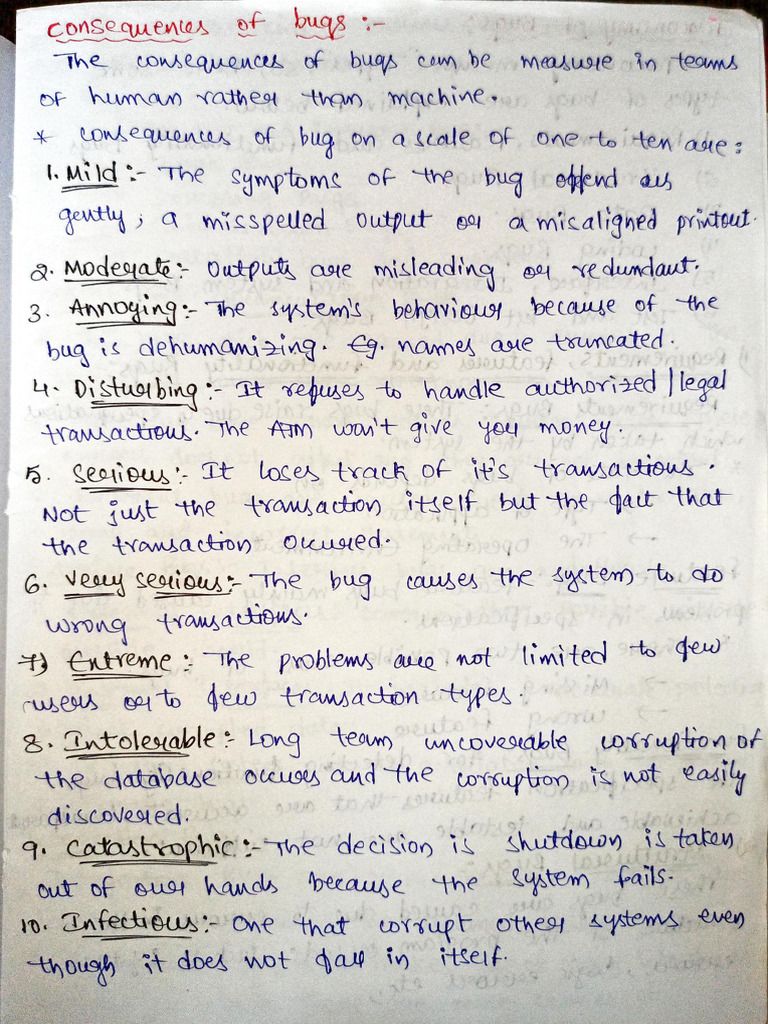 consequences of bugs :-
The consequences of bugs can be measure in teams
of human rather than machine.
* consequences of bug on a scale of one to ten are:
1. Mild :- The symptoms of the bug offend us
gently; a misspelled output or a misaligned printout.
2. Moderate:- Outputs are misleading or redundant.
3. Annoying:- The system's behaviour because of the
bug is dehumanizing. Eg. names are truncated.
4. Disturbing:- It refuses to handle authorized/legal
transactions. The ATM won't give you money.
5. Serious:- It loses track of it's transactions.
Not just the transaction itself but the fact that
the transaction occured.
6. Very serious:- The bug causes the system to do
wrong transactions.
7) Extreme:- The problems are not limited to few
users or to few transaction types.
8. Intolerable:- Long team uncoverable corruption of
the database occurs and the corruption is not easily
discovered.
9. Catastrophic:- The decision is shutdown is taken
out of our hands because the system fails.
10. Infectious:- One that corrupt other systems even
though it does not fall in itself.